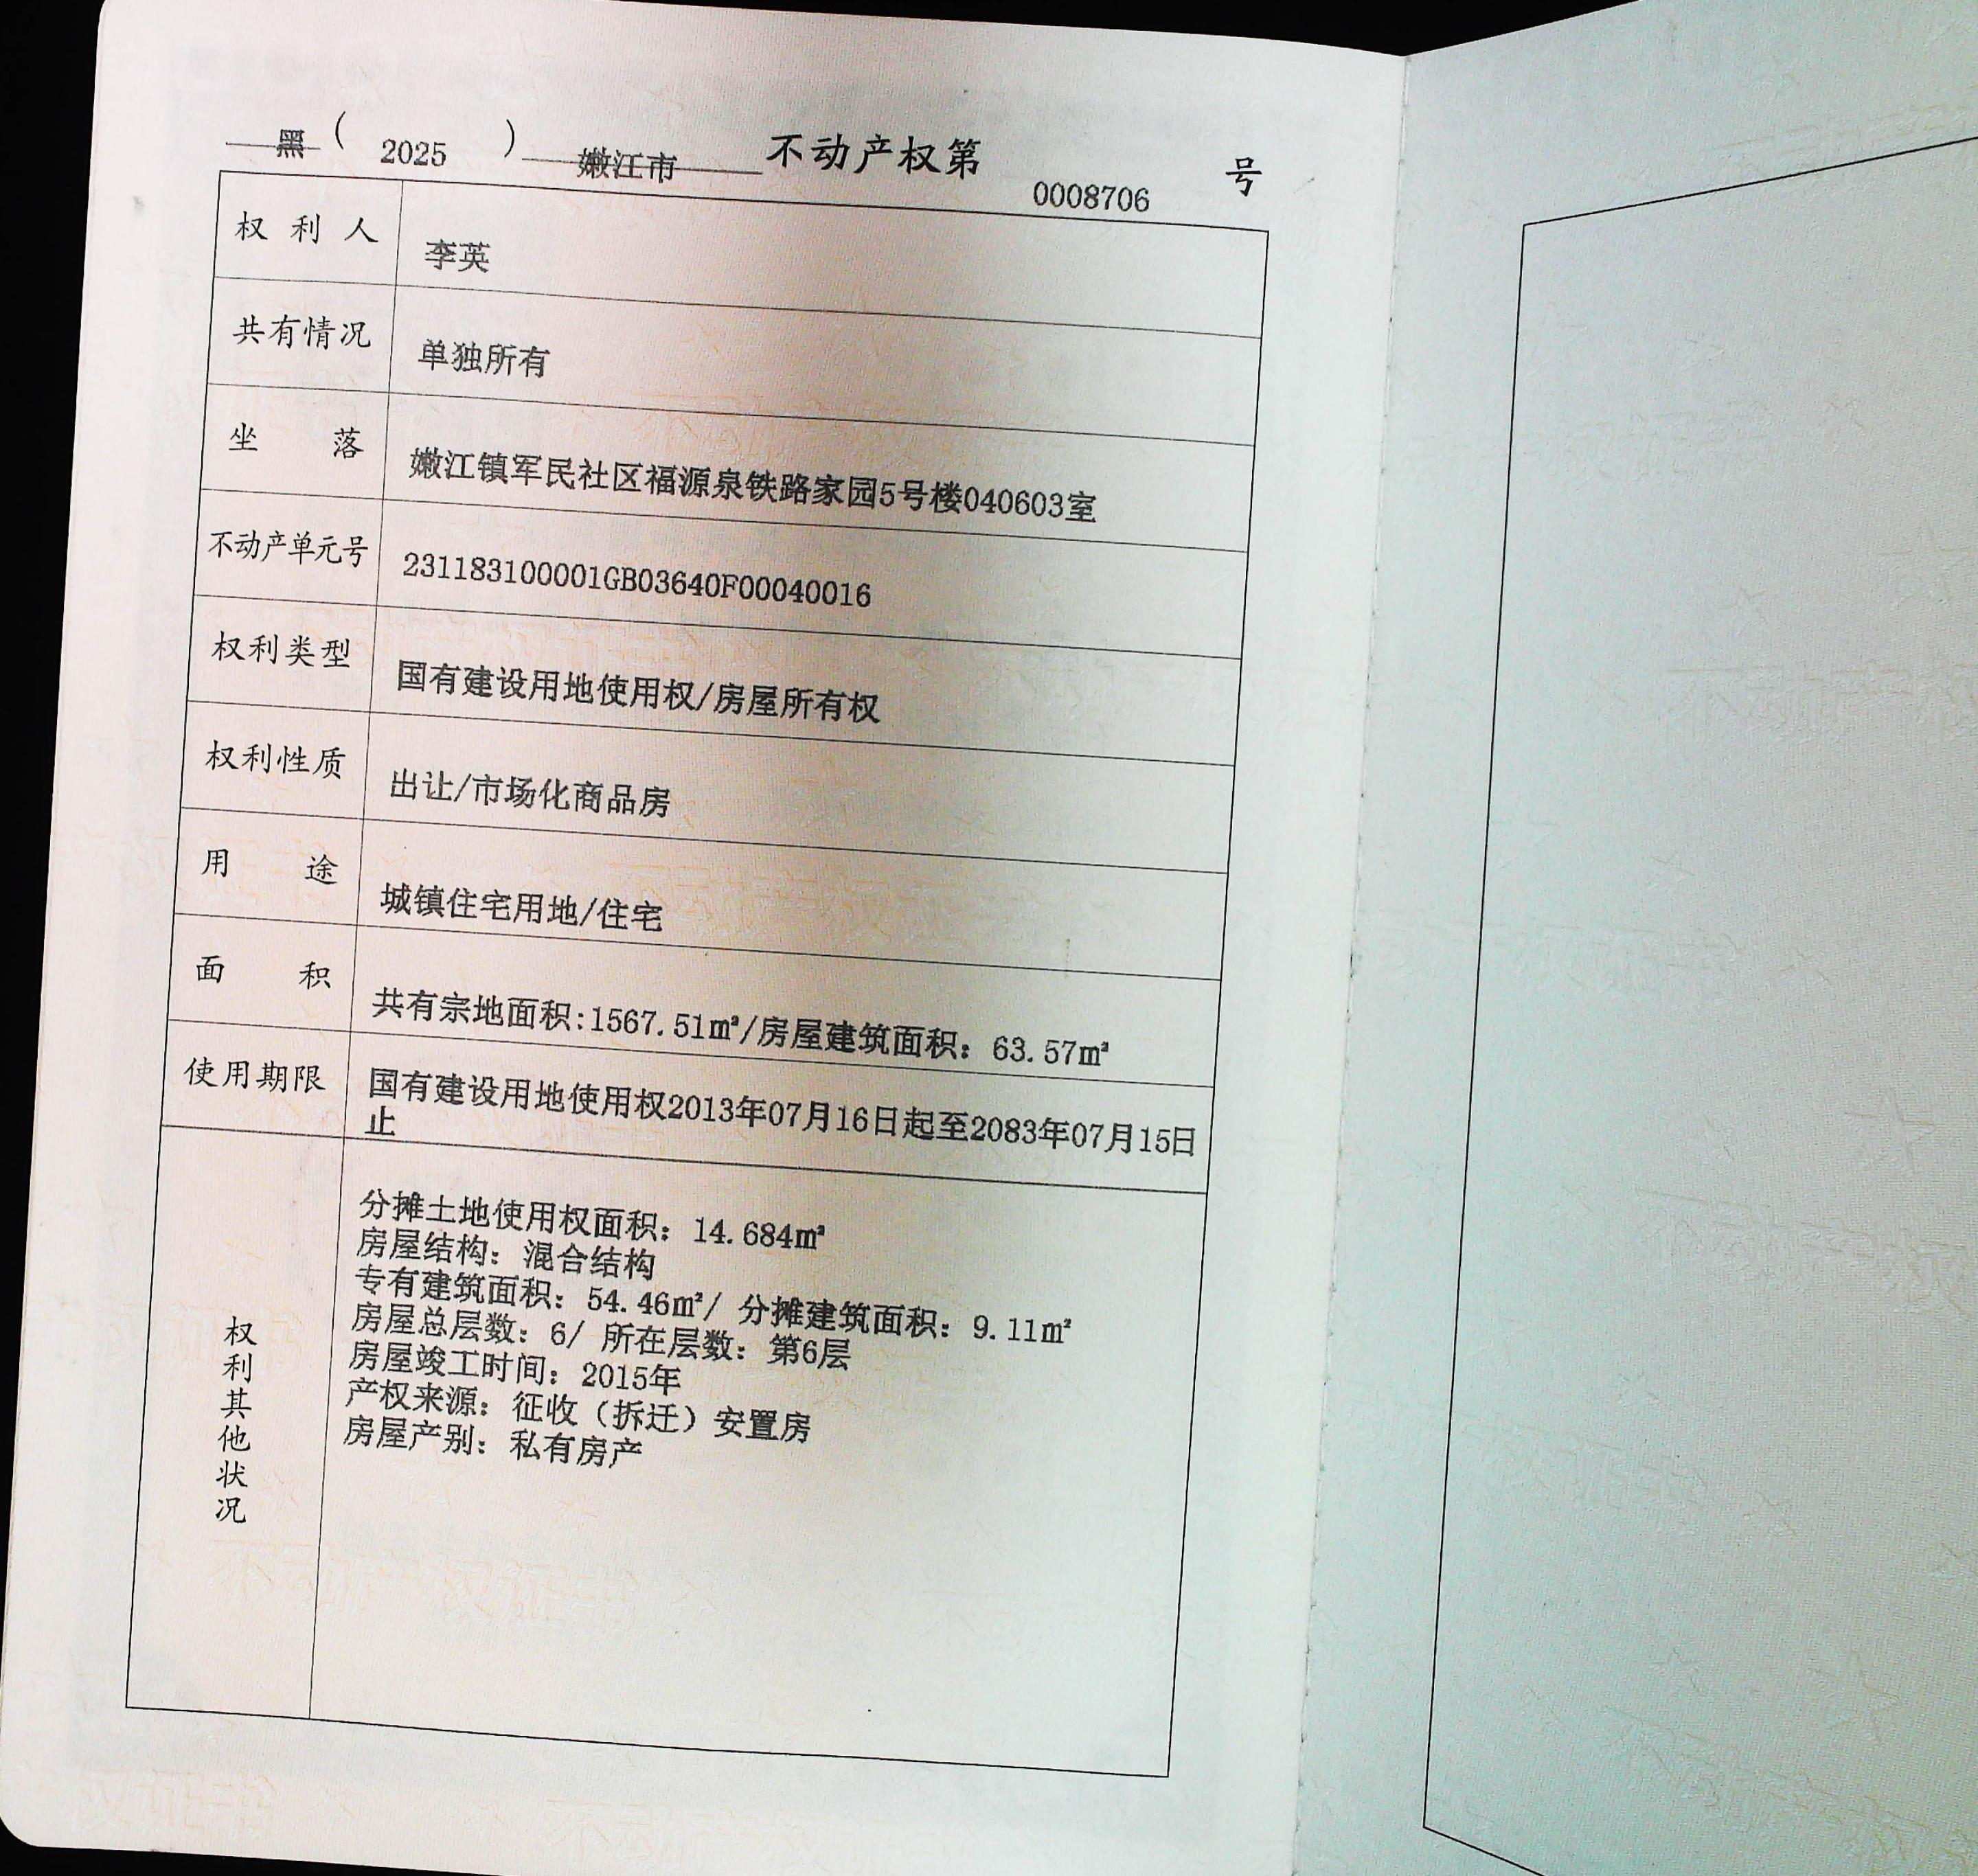 黑(2025)嫩江市不动产权第0008706号
权利人 李英
共有情况 单独所有
坐落 嫩江镇军民社区福源泉铁路家园5号楼040603室
不动产单元号 231183100001GB03640F00040016
权利类型 国有建设用地使用权/房屋所有权
权利性质 出让/市场化商品房
用途 城镇住宅用地/住宅
面积 共有宗地面积:1567.51㎡/房屋建筑面积：63.57㎡
使用期限 国有建设用地使用权2013年07月16日起至2083年07月15日
止
权利其他状况
分摊土地使用权面积：14.684㎡
房屋结构：混合结构
专有建筑面积：54.46㎡/ 分摊建筑面积：9.11㎡
房屋总层数：6/ 所在层数：第6层
房屋竣工时间：2015年
产权来源：征收（拆迁）安置房
房屋产别：私有房产